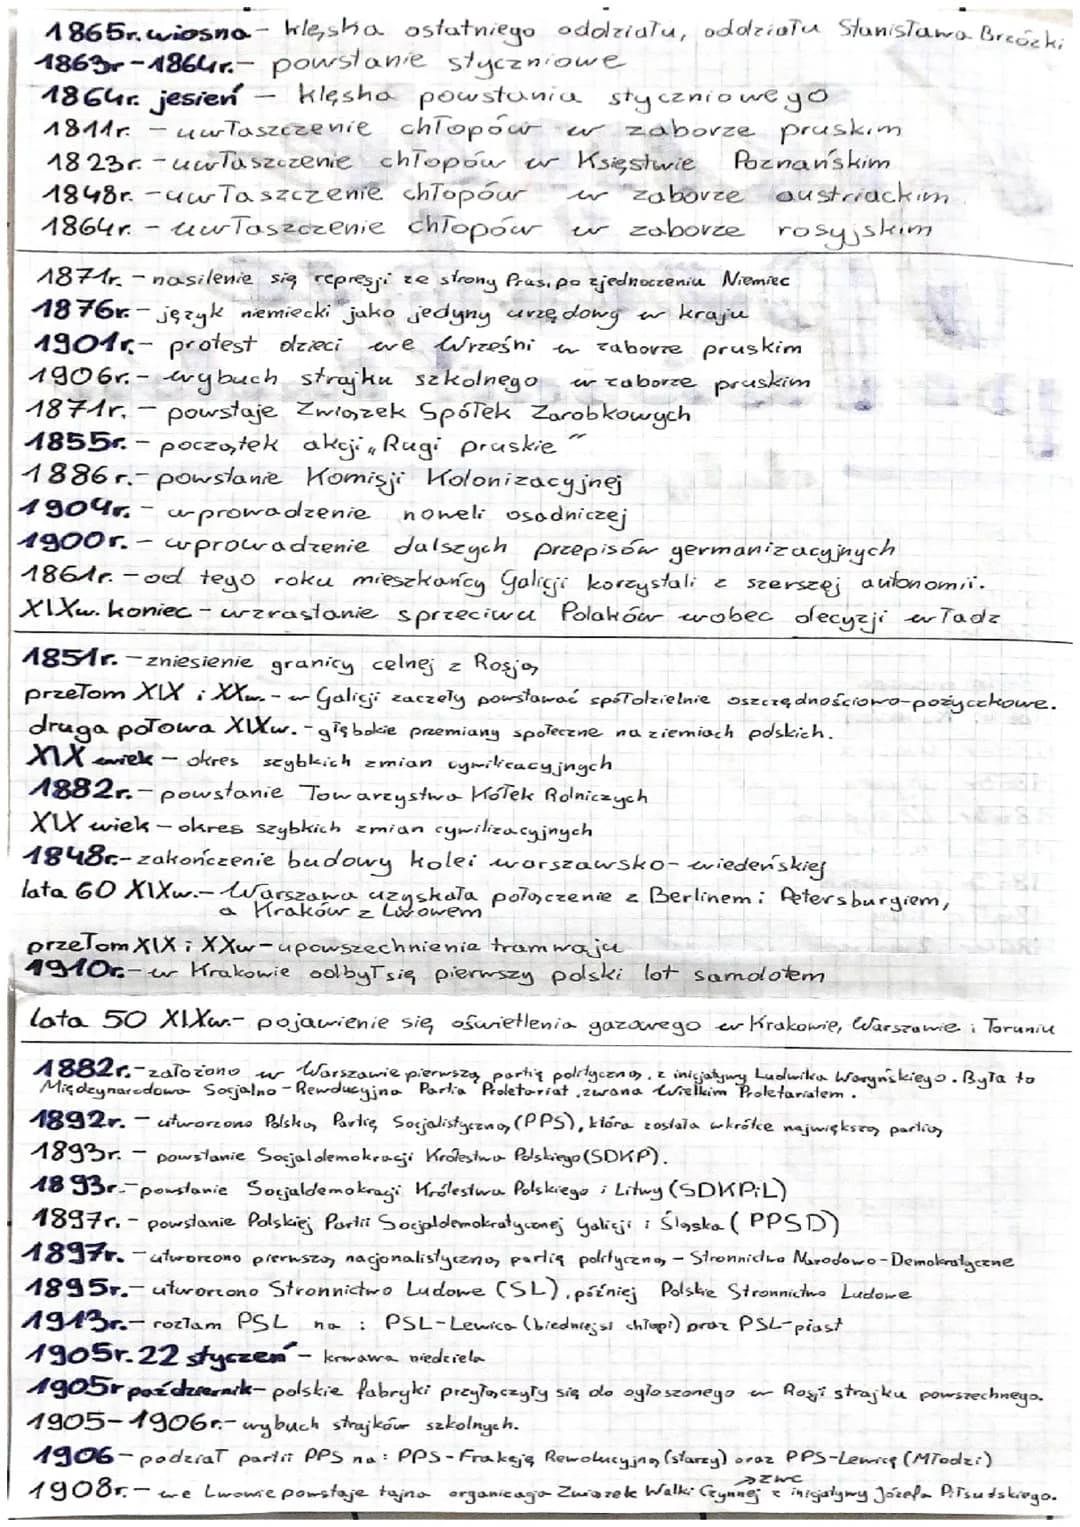 1865r. wiosna - klęska ostatniego oddziału, oddziału Stanisława Brzózki
1863r - 1864r. - powstanie styczniowe
1864r. jesień - klęska powstania styczniowego
1811r. - uwłaszczenie chłopów w zaborze pruskim
1823r. - uwłaszczenie chłopów w Księstwie Poznańskim
1848r. - uwłaszczenie chłopów w zaborze austriackim
1864r. - uwłaszczenie chłopów w zaborze rosyjskim
1871r. - nasilenie się represji ze strony Prus, po zjednoczeniu Niemiec
1876r. - język niemiecki jako jedyny urzędowy w kraju
1901r. - protest dzieci we Wrześni w zaborze pruskim
1906r. - wybuch strajku szkolnego w zaborze pruskim
1871r. - powstaje Związek Spółek Zarobkowych
1855r. - początek akcji „Rugi pruskie"
1886r. - powstanie Komisji Kolonizacyjnej
1904r. - wprowadzenie noweli osadniczej
1900r. - wprowadzenie dalszych przepisów germanizacyjnych
1861r. - od tego roku mieszkańcy Galicji korzystali z szerszej autonomii.
XIXw. koniec - wzrastanie sprzeciwu Polaków wobec decyzji władz
1851r. - zniesienie granicy celnej z Rosją
przełom XIX i XXw. - w Galicji zaczęły powstawać spółdzielnie oszczędnościowo-pożyczkowe.
druga połowa XIXw. - głębokie przemiany społeczne na ziemiach polskich.
XIX wiek - okres szybkich zmian cywilizacyjnych
1882r. - powstanie Towarzystwa Kółek Rolniczych
XIX wiek - okres szybkich zmian cywilizacyjnych
1848r. - zakończenie budowy kolei warszawsko-wiedeńskiej
lata 60 XIXw. - Warszawa uzyskała połączenie z Berlinem i Petersburgiem,
a Kraków z Lwowem
przełom XIX i XXw - upowszechnienie tramwaju
1910r. - w Krakowie odbył się pierwszy polski lot samolotem
lata 50 XIXw. - pojawienie się oświetlenia gazowego w Krakowie, Warszawie i Toruniu
1882r. - założono w Warszawie pierwszą partię polityczną, z inicjatywy Ludwika Waryńskiego. Była to
Międzynarodowa Socjalno-Rewolucyjna Partia Proletariat, zwana Wielkim Proletariatem.
1892r. - utworzono Polską Partię Socjalistyczną (PPS), która została wkrótce największą partią
1893r. - powstanie Socjaldemokracji Królestwa Polskiego (SDKP).
1893r. - powstanie Socjaldemokracji Królestwa Polskiego i Litwy (SDKPiL)
1897r. - powstanie Polskiej Partii Socjaldemokratycznej Galicji i Śląska (PPSD)
1897r. - utworzono pierwszą nacjonalistyczną partię polityczną - Stronnictwo Narodowo-Demokratyczne
1895r. - utworzono Stronnictwo Ludowe (SL), później Polskie Stronnictwo Ludowe
1913r. - rozłam PSL na: PSL-Lewica (biedniejsi chłopi) oraz PSL-piast
1905r. 22 styczeń - krwawa niedziela
1905r październik - polskie fabryki przyłączyły się do ogłoszonego w Rosji strajku powszechnego.
1905-1906r. - wybuch strajków szkolnych.
1906 - podział partii PPS na: PPS-Frakcję Rewolucyjną (starzy) oraz PPS-Lewicę (Młodzi)
→ZWC
1908r. - we Lwowie powstaje tajna organizacja Związek Walki Czynnej z inicjatywy Józefa Piłsudskiego.